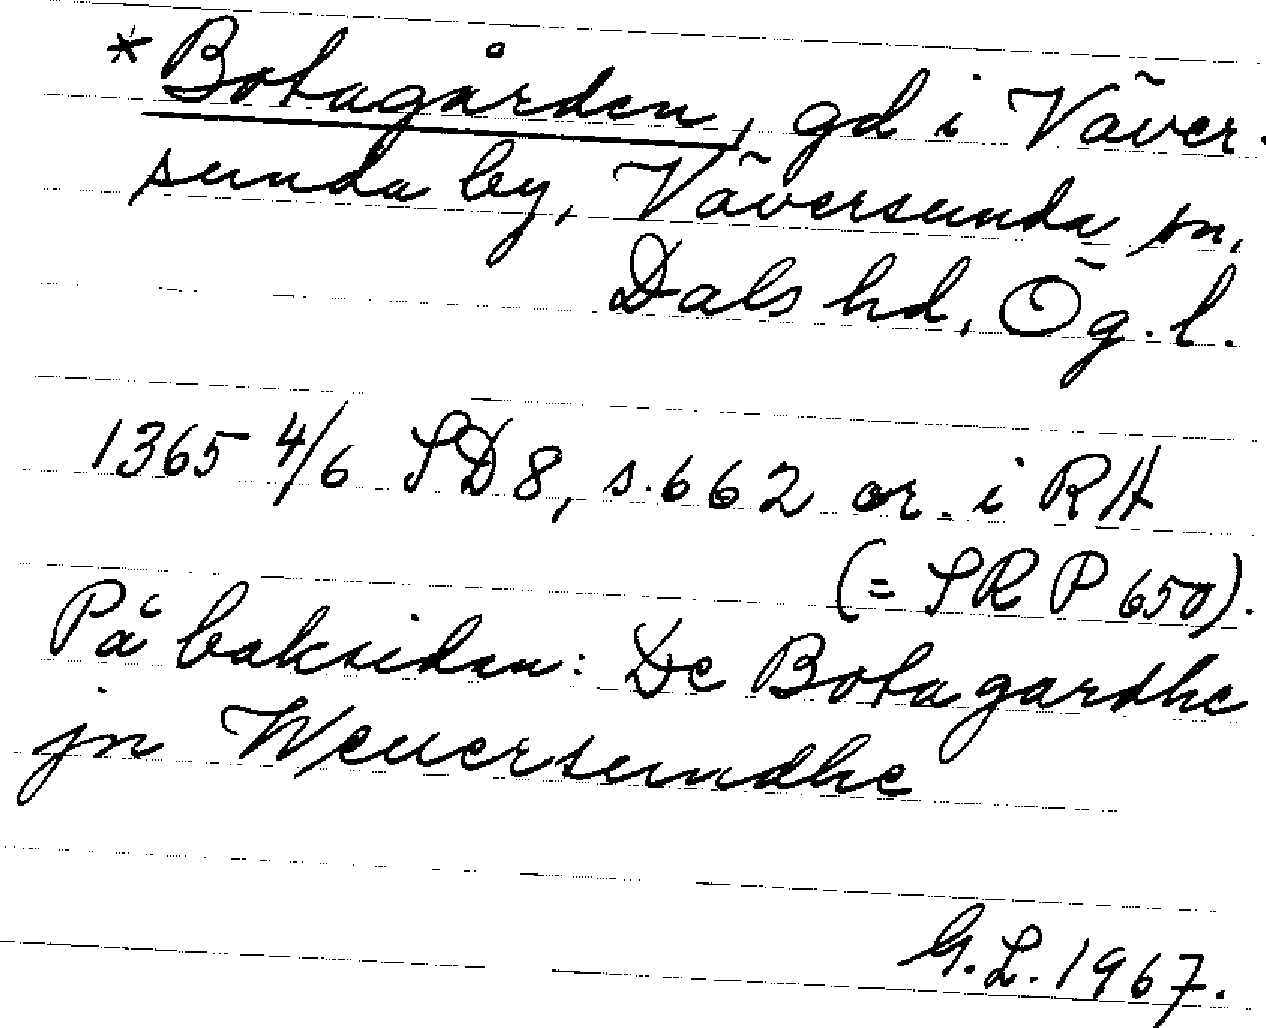 *Botagården, gd i Väver-
sunda by, Väversunda sn,
Dals hd, Ög. l.
1365 4/6 SD 8, s. 662 or. i RA
(= SRP 650).
På baksidan: De Botagardhe
jn Weuersundhe
G. L. 1967.